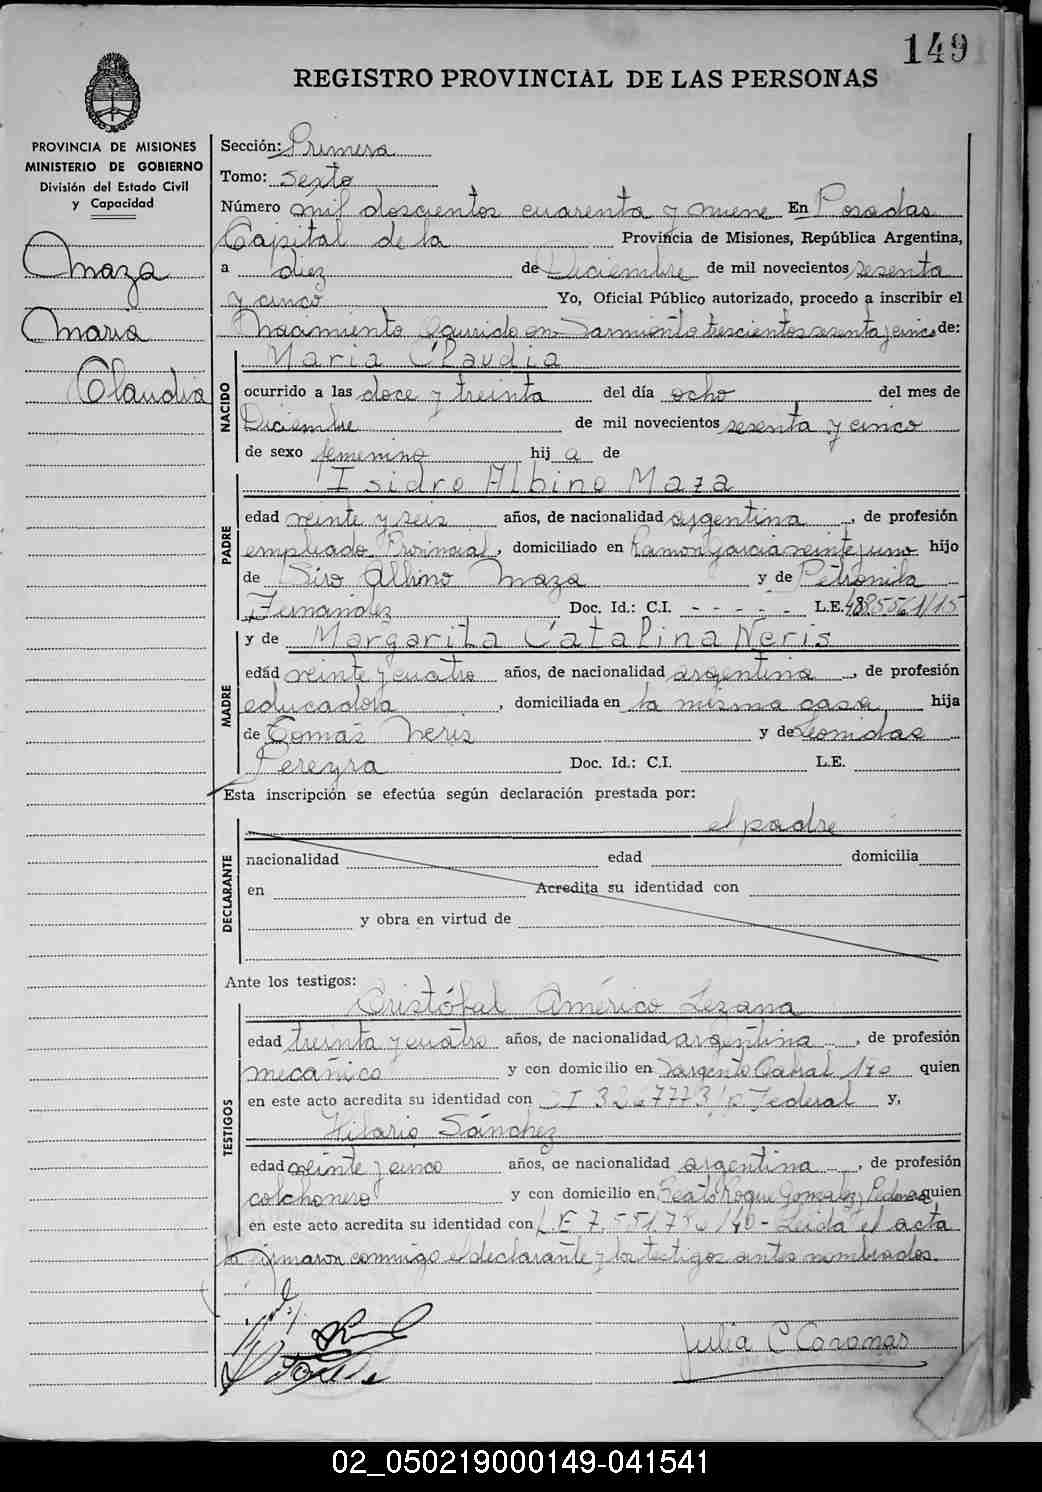 149
REGISTRO PROVINCIAL DE LAS PERSONAS
PROVINCIA DE MISIONES
MINISTERIO DE GOBIERNO
División del Estado Civil
y Capacidad
Maza
Maria
Claudia
Sección: Primera
Tomo: Sexto
Número mil doscientos cuarenta y nueve En Posadas
Capital de la Provincia de Misiones, República Argentina,
a diez de Diciembre de mil novecientos sesenta
y cinco Yo, Oficial Público autorizado, procedo a inscribir el
Nacimiento Ocurrido en Sarmiento trescientos sesenta y cinco de:
NACIDO
Maria Claudia
ocurrido a las doce y treinta del día ocho del mes de
Diciembre de mil novecientos sesenta y cinco
de sexo femenino hij a de
PADRE
Isidro Albino Maza
edad veinte y seis años, de nacionalidad argentina, de profesión
empleado Provincial, domiciliado en Ramon Garcia veinte y uno hijo
de Siro Albino Maza y de Petronila
Fernández Doc. Id.: C.I. - - - - - L.E.
y de Margarita Catalina Neris
MADRE
edad veinte y cuatro años, de nacionalidad argentina, de profesión
educadora, domiciliada en la misma casa hija
de Tomás Neris y de Leonidas
Pereyra Doc. Id.: C.I. L.E.
Esta inscripción se efectúa según declaración prestada por:
DECLARANTE
el padre
nacionalidad edad domicilia
en Acredita su identidad con
y obra en virtud de
Ante los testigos:
TESTIGOS
Cristóbal Américo Lezana
edad treinta y cuatro años, de nacionalidad argentina, de profesión
mecánico y con domicilio en Sargento Cabral 170 quien
en este acto acredita su identidad con Federal y,
Hilario Sánchez
edad veinte y cinco años, de nacionalidad argentina, de profesión
colchonero y con domicilio en Beato Roque Gonzalez quien
en este acto acredita su identidad con L.E. Leida el acta
la firmaron conmigo el declarante y los testigos antes nombrados.
Julia C
02_050219000149-041541